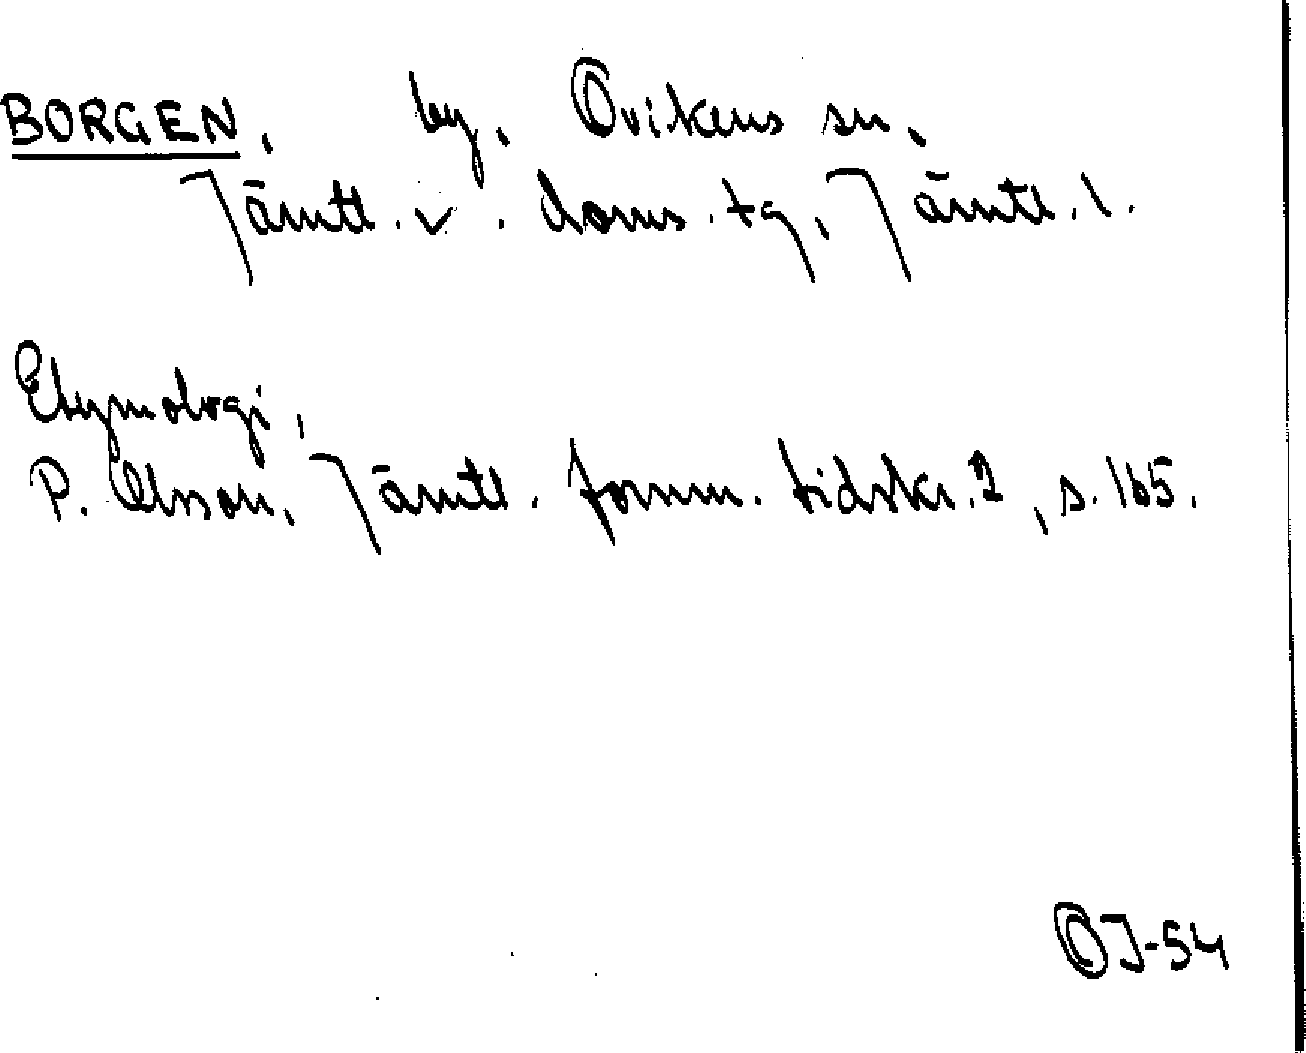 BORGEN, by, Ovikens sn,
Jämtl. v. doms. tg, Jämtl. l.
Etymologi,
P. Olsson, Jämtl. fornm. tidskr. 2, s. 165.
OJ-54